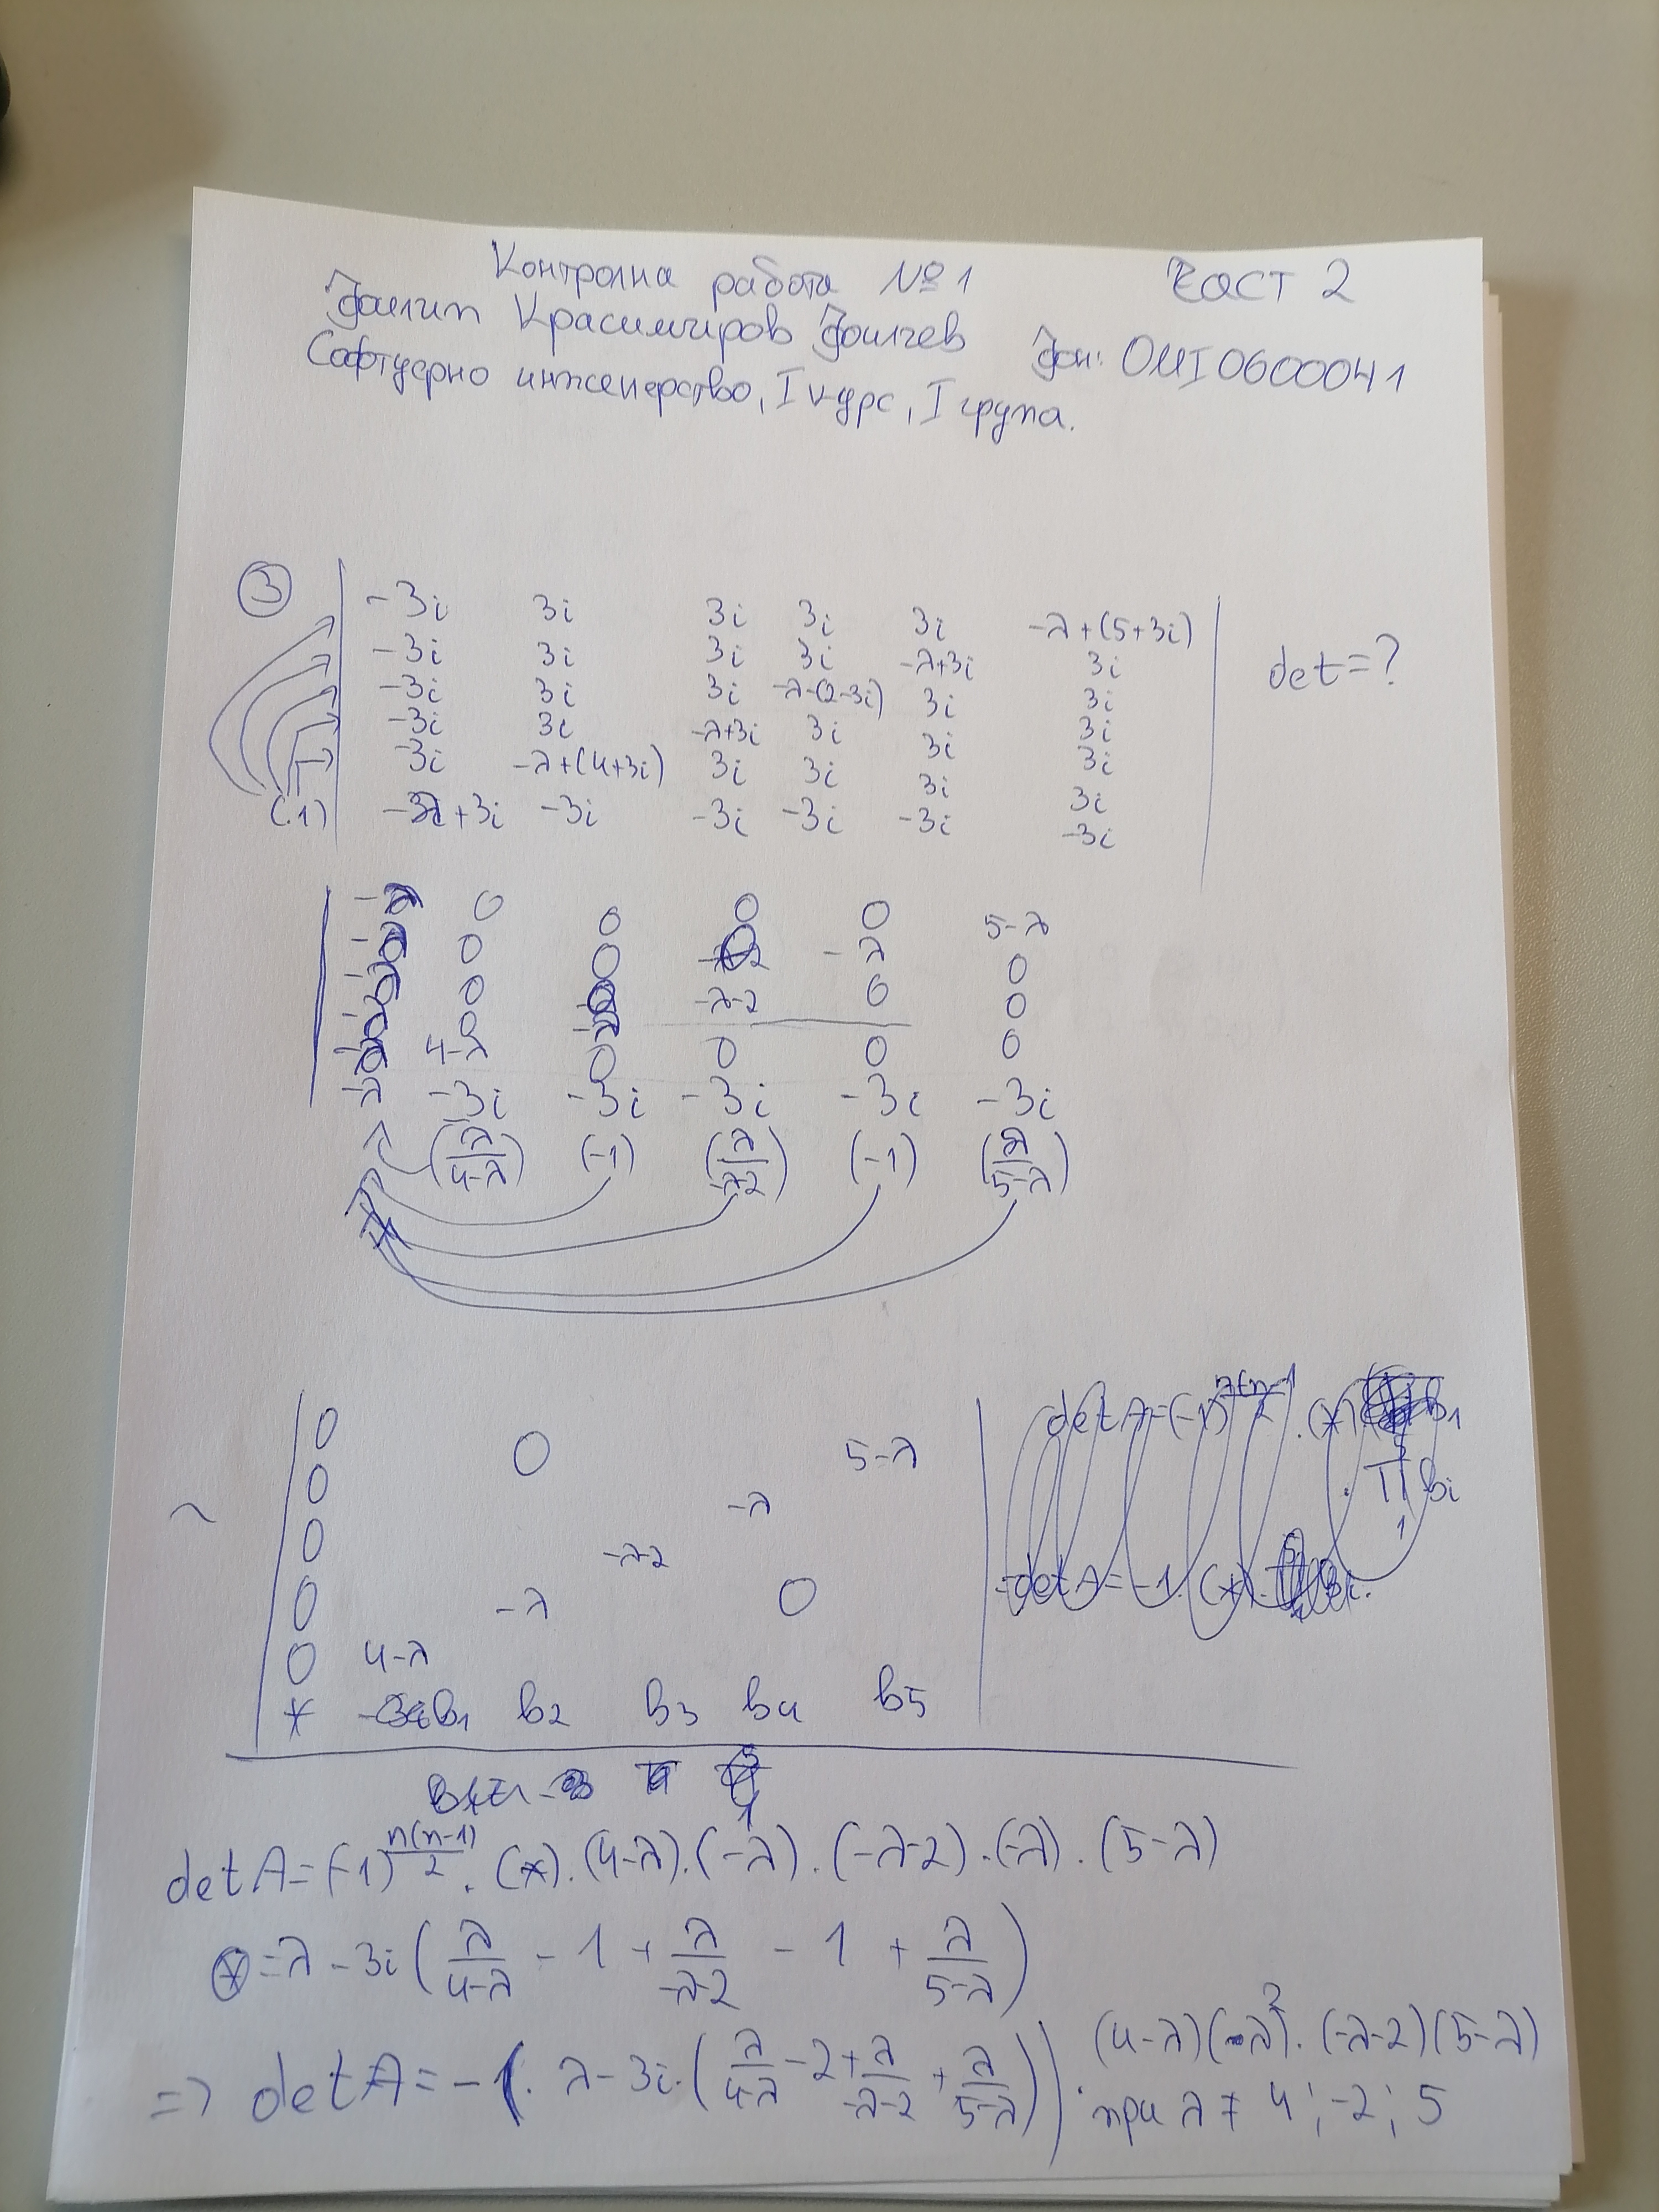 Контролна работа №1 Част 2
Филип Красимиров Филчев фн: 0MI0600041
Софтуерно инженерство, I курс, I група.
③ -3i 3i 3i 3i 3i -λ+(5+3i)
-3i 3i 3i 3i -λ+3i 3i det=?
-3i 3i 3i -λ-(2-3i) 3i 3i
-3i 3i -λ+3i 3i 3i 3i
-3i -λ+(4+3i) 3i 3i 3i 3i
(.1) +3i -3i -3i -3i -3i -3i
-λ 0 0 0 0 5-λ
-λ 0 0 -λ 0
-λ 0 -λ-2 0 0
-λ 0
4-λ 0 0 0 0
-λ -3i -3i -3i -3i -3i
(λ/4-λ) (-1) (λ/-λ-2) (-1) (λ/5-λ)
0 0 5-λ
0 -λ
~ 0 -λ-2
0 -λ 0
0 4-λ
* b1 b2 b3 b4 b5
detA=(-1)^n(n-1)/2 . (*).(4-λ).(-λ).(-λ-2).(-λ).(5-λ)
⊛=λ-3i(λ/4-λ - 1 + λ/-λ-2 - 1 + λ/5-λ)
=> detA=-1. λ-3i.(λ/4-λ -2+ λ/-λ-2 + λ/5-λ)) . (4-λ)(-λ)².(-λ-2)(5-λ)
при λ ≠ 4; -2; 5